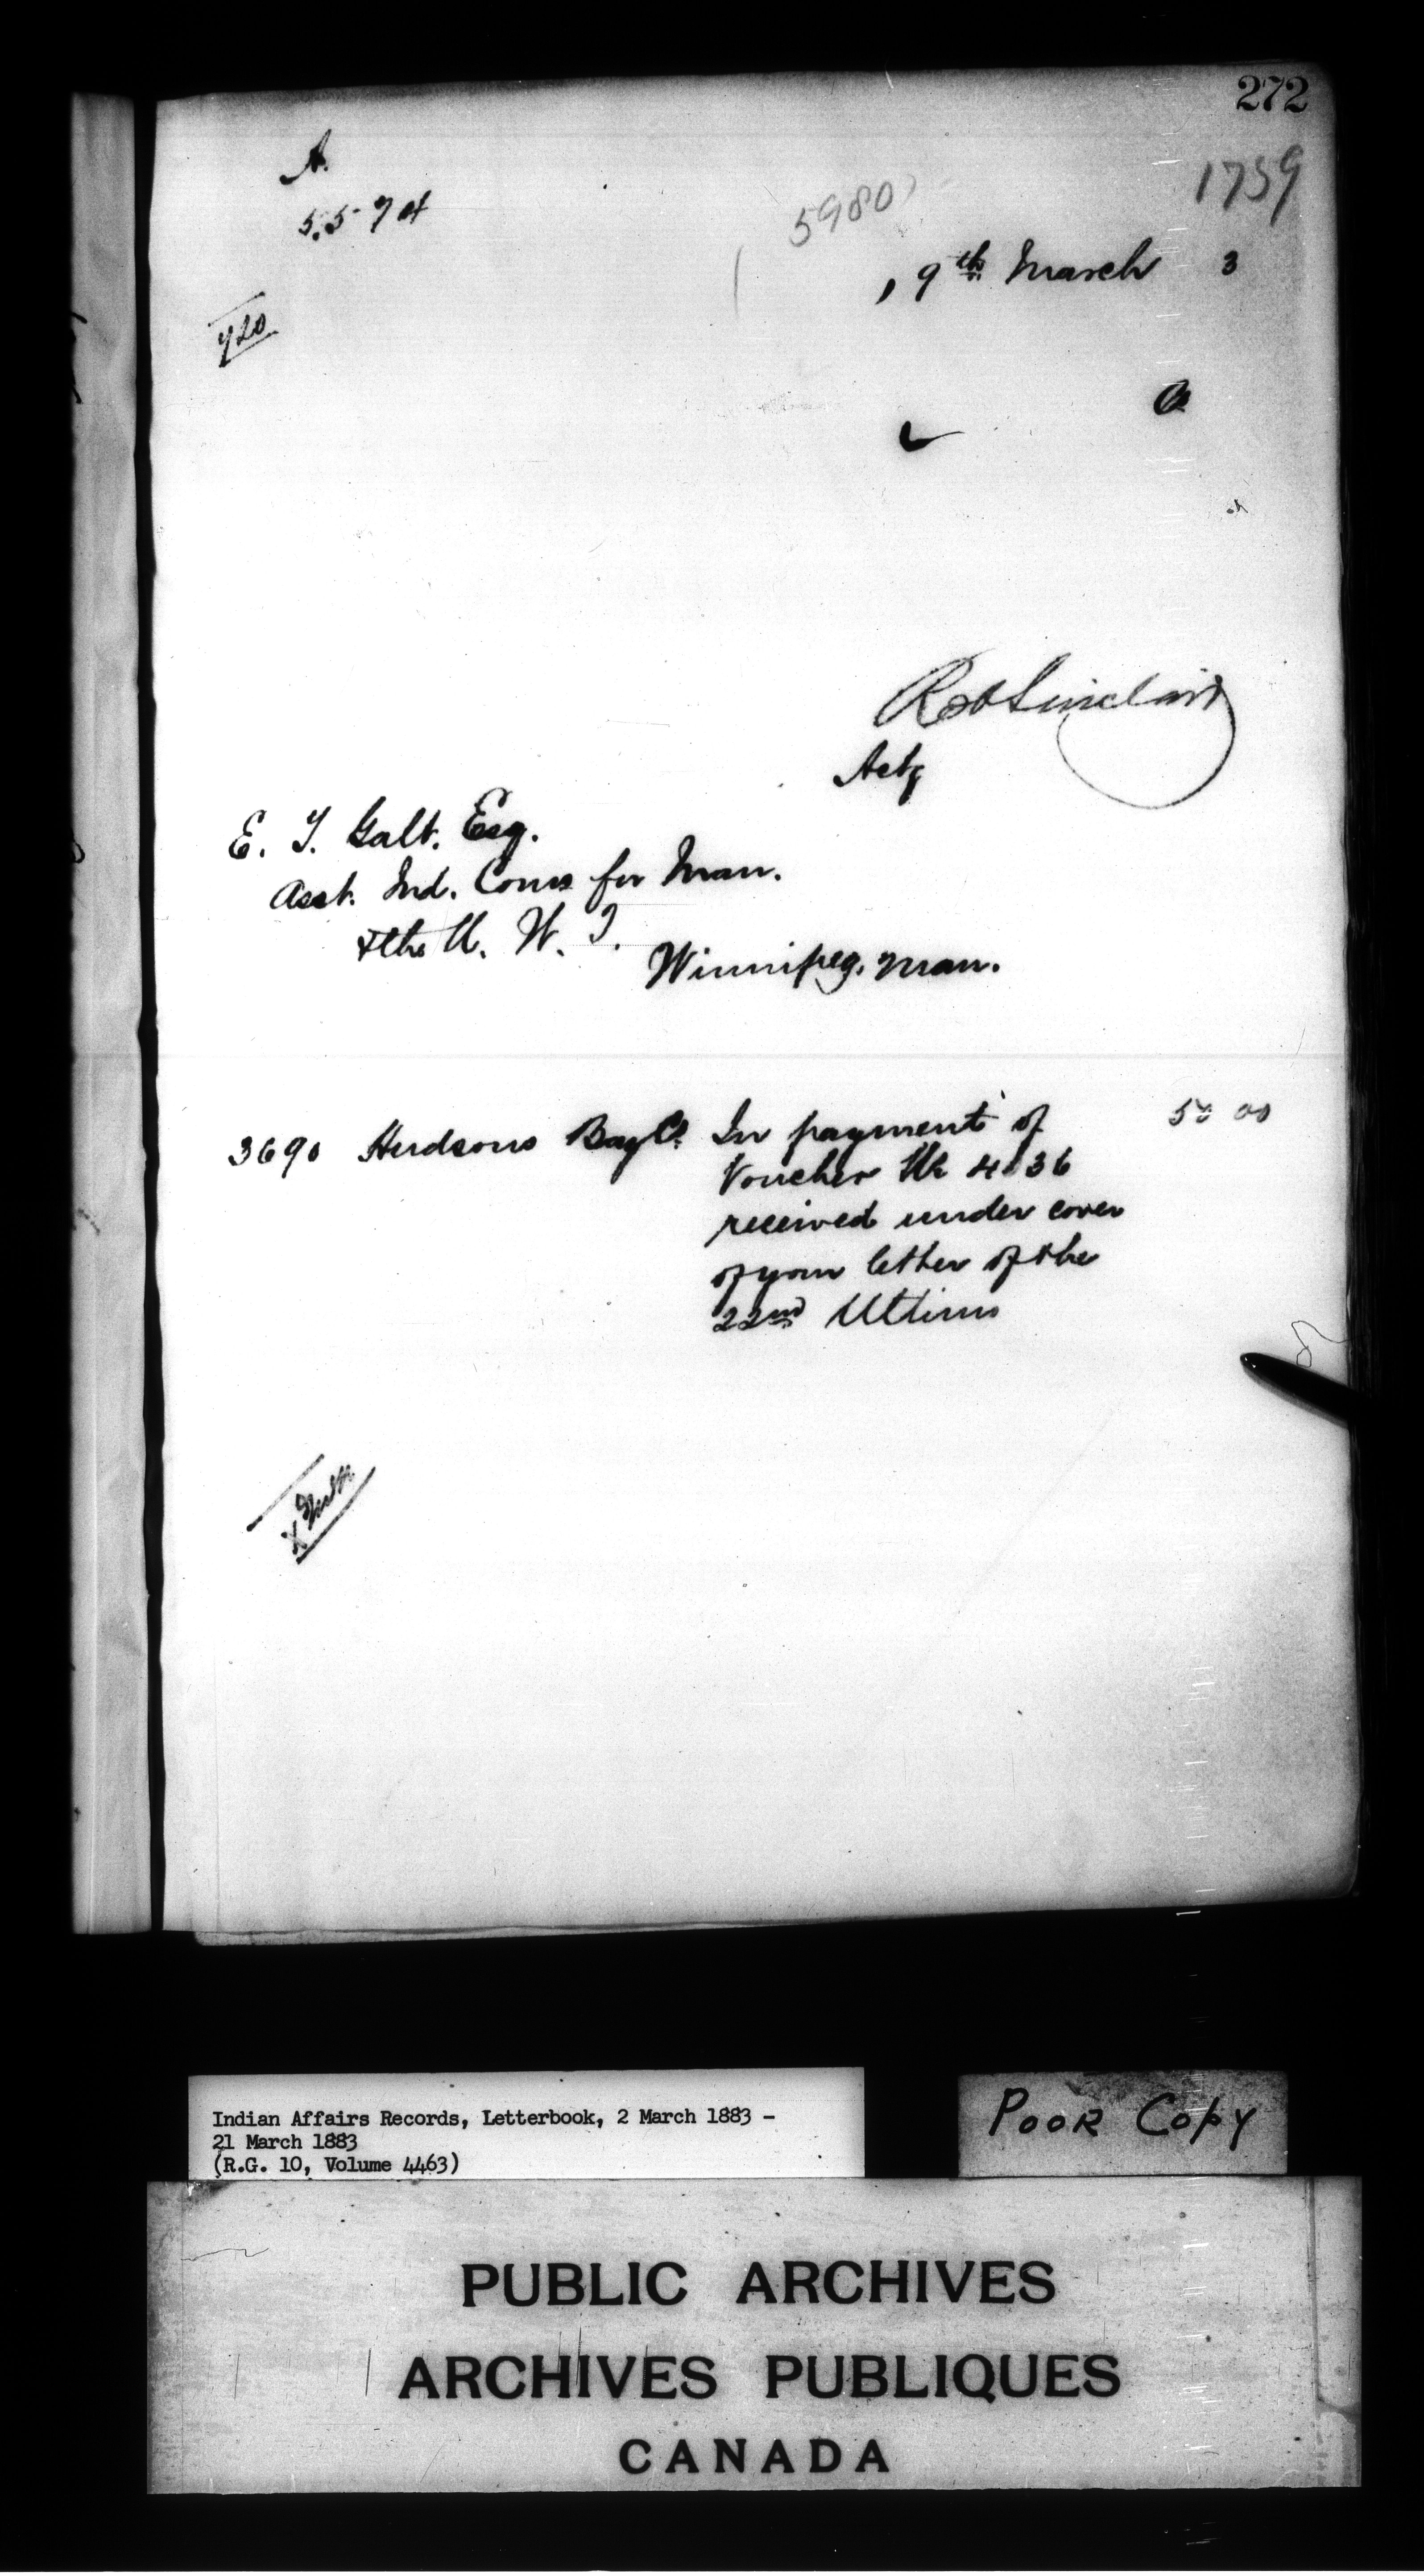 272
1739
A.
5.574
5980
, 9th March 3
720
a
Robt Sinclair
Actg
E. T. Galt. Esq.
Asst. Ind. Coms for Man.
& the N. W. T.
Winnipeg. Man.
3690 Hudsons Bay Co. In payment of 50 00
Voucher No 4136
received under cover
of your letter of the
22nd Ultimo
Indian Affairs Records, Letterbook, 2 March 1883 -
21 March 1883
(R.G. 10, Volume 4463)
POOR COPY
PUBLIC ARCHIVES
ARCHIVES PUBLIQUES
CANADA